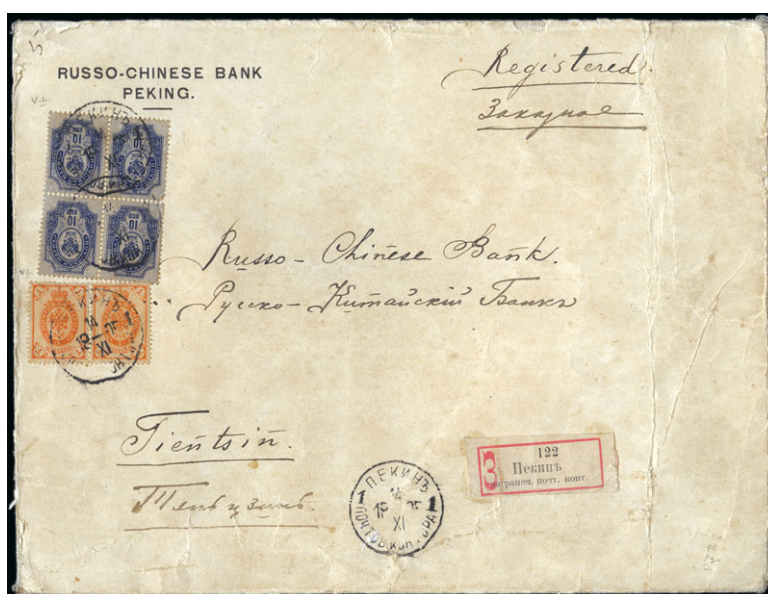 RUSSO-CHINESE BANK
PEKING.
Registered.
Заказное
10
10
10
10
Russo-Chinese Bank.
Русско-Китайскій Банкъ
Tientsin.
Тяньцзинь.
ПЕКИНЪ
1 1
XI
ПОЧТОВ. КОНТОРА
З
122
Пекинъ
погранич. почт. конт.